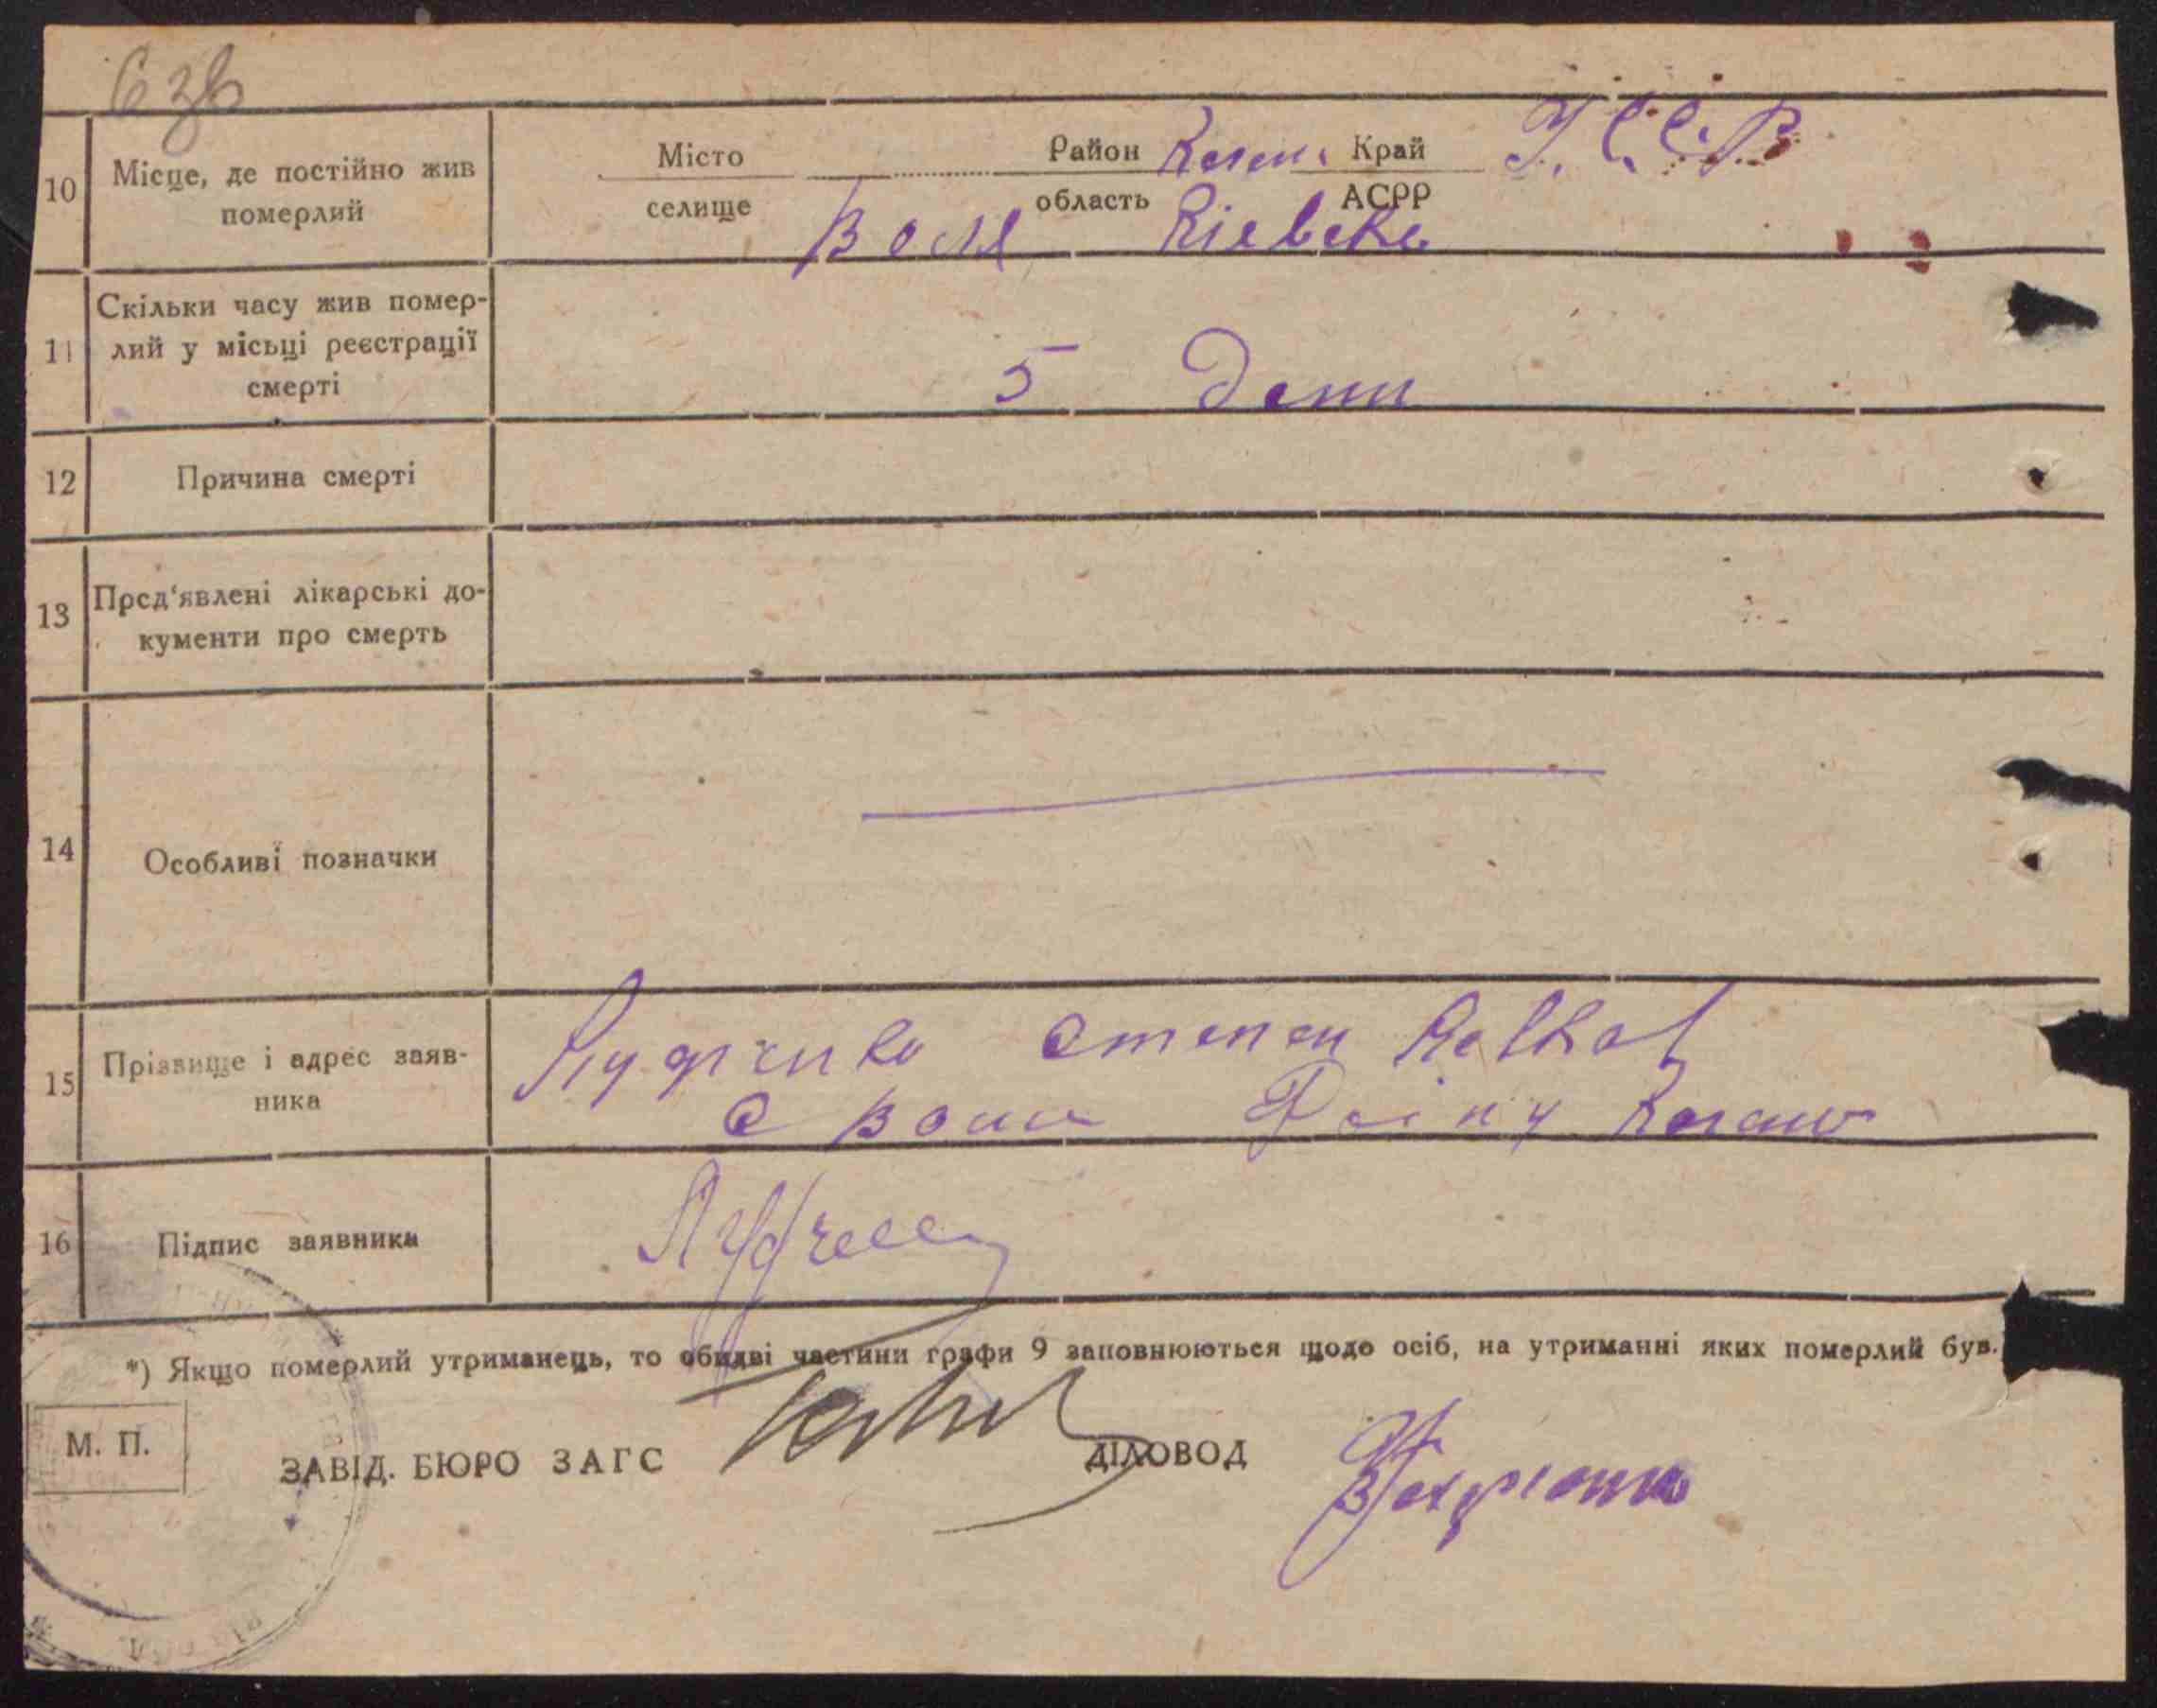 10 Місце, де постійно жив померлий
Місто селище Воля
Район область Киевска
Край АСРР У.С.С.Р
11 Скільки часу жив помер-
лий у місьці реєстрації
смерті
5 Дени
12 Причина смерті
13 Пред'явлені лікарські до-
кументи про смерть
14 Особливі позначки
15 Прізвище і адрес заяв-
ника
Степан
с Воли Району
16 Підпис заявника
*) Якщо померлий утриманець, то обидві частини графи 9 заповнюються щодо осіб, на утриманні яких померлий був.
М. П.
ЗАВІД. БЮРО ЗАГС
ДІЛОВОД